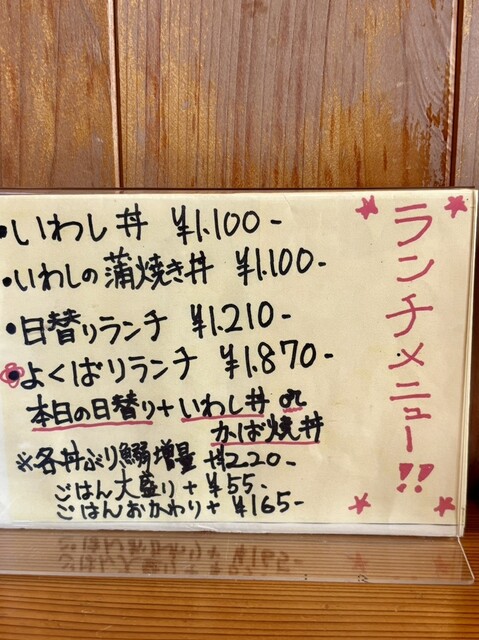 ランチメニュー!!
・いわし丼 ¥1.100-
・いわしの蒲焼き丼 ¥1.100-
・日替りランチ ¥1.210-
よくばりランチ ¥1.870-
本日の日替り+いわし丼 or
かば焼丼
※各丼ぶり鰯増量 +¥220-
ごはん大盛り+¥55-
ごはんおかわり+¥165-